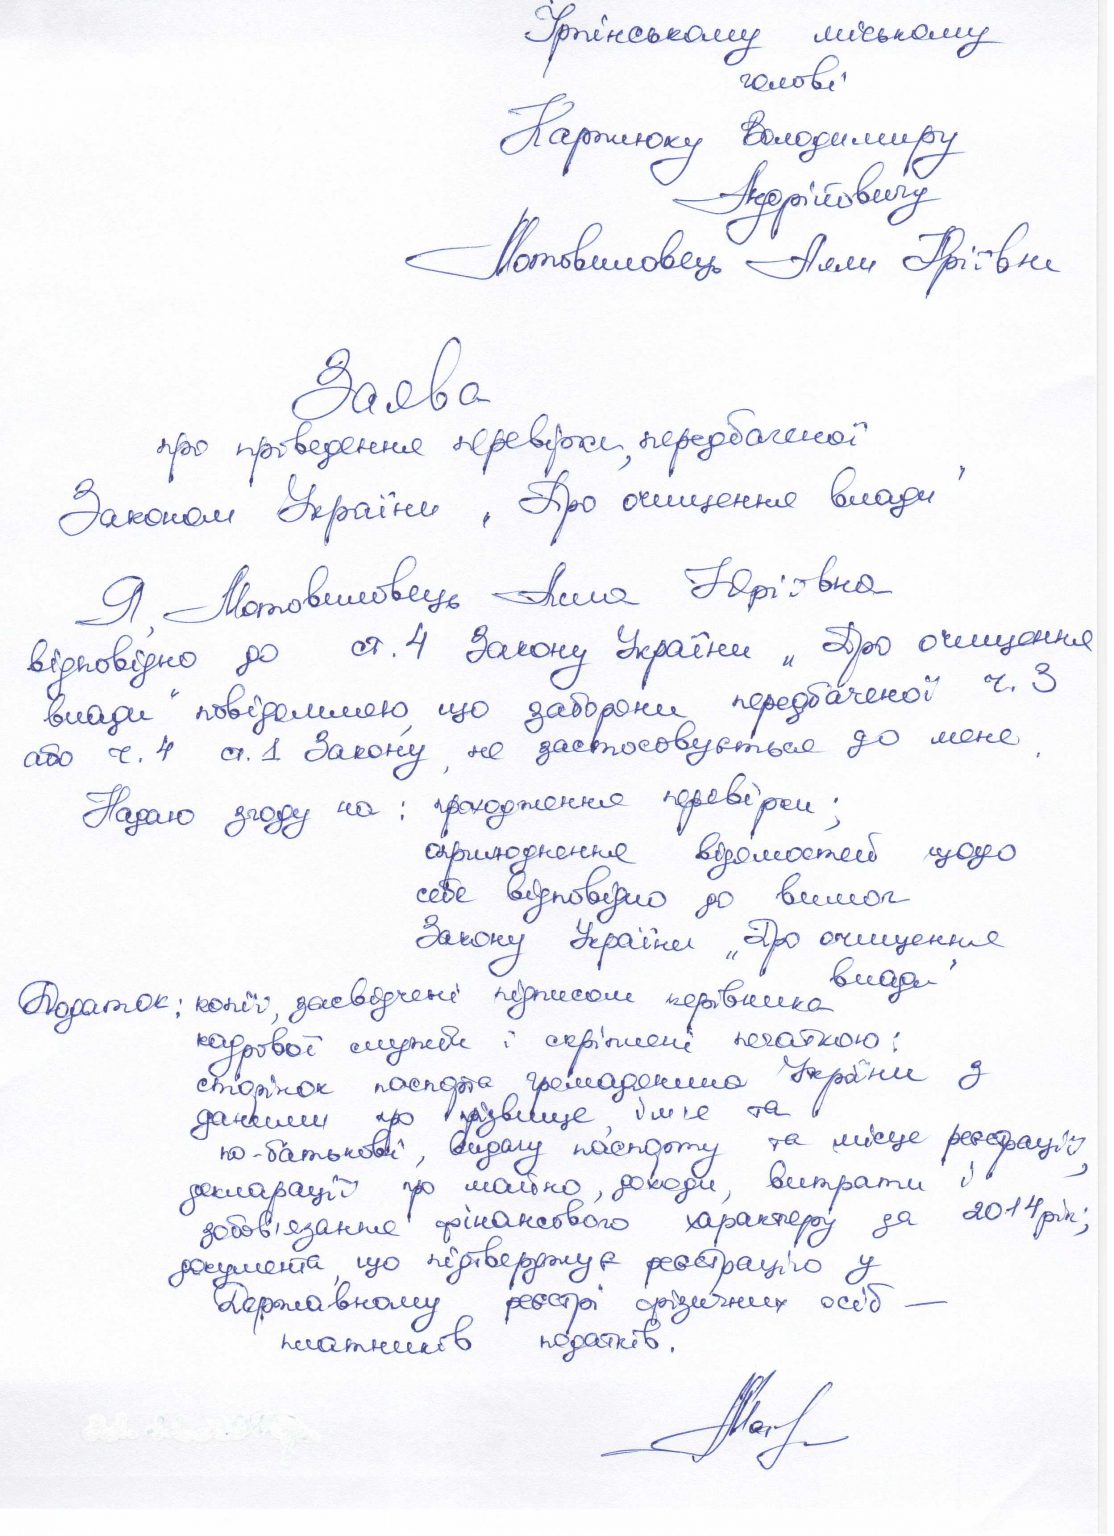 Ірпінському міському
голові
Карплюку Володимиру
Андрійовичу
Мотовиловець Алли Юріївни
Заява
про проведення перевірки, передбаченої
Законом України „Про очищення влади"
Я, Мотовиловець Алла Юріївна
відповідно до ст. 4 Закону України „Про очищення
влади" повідомляю, що заборони передбаченої ч. 3
або ч. 4 ст. 1 Закону, не застосовується до мене.
Надаю згоду на: проходження перевірки;
оприлюднення відомостей щодо
себе відповідно до вимог
Закону України „Про очищення
влади"
Додаток: копії, засвідчені підписом керівника
кадрової служби і скріплені печаткою:
сторінок паспорта громадянина України з
даними про прізвище, ім'я та
по-батькові, видачу паспорту та місце реєстрації,
декларації про майно, доходи, витрати і
зобов'язання фінансового характеру за 2014 рік;
документа, що підтверджує реєстрацію у
Державному реєстрі фізичних осіб –
платників податків.